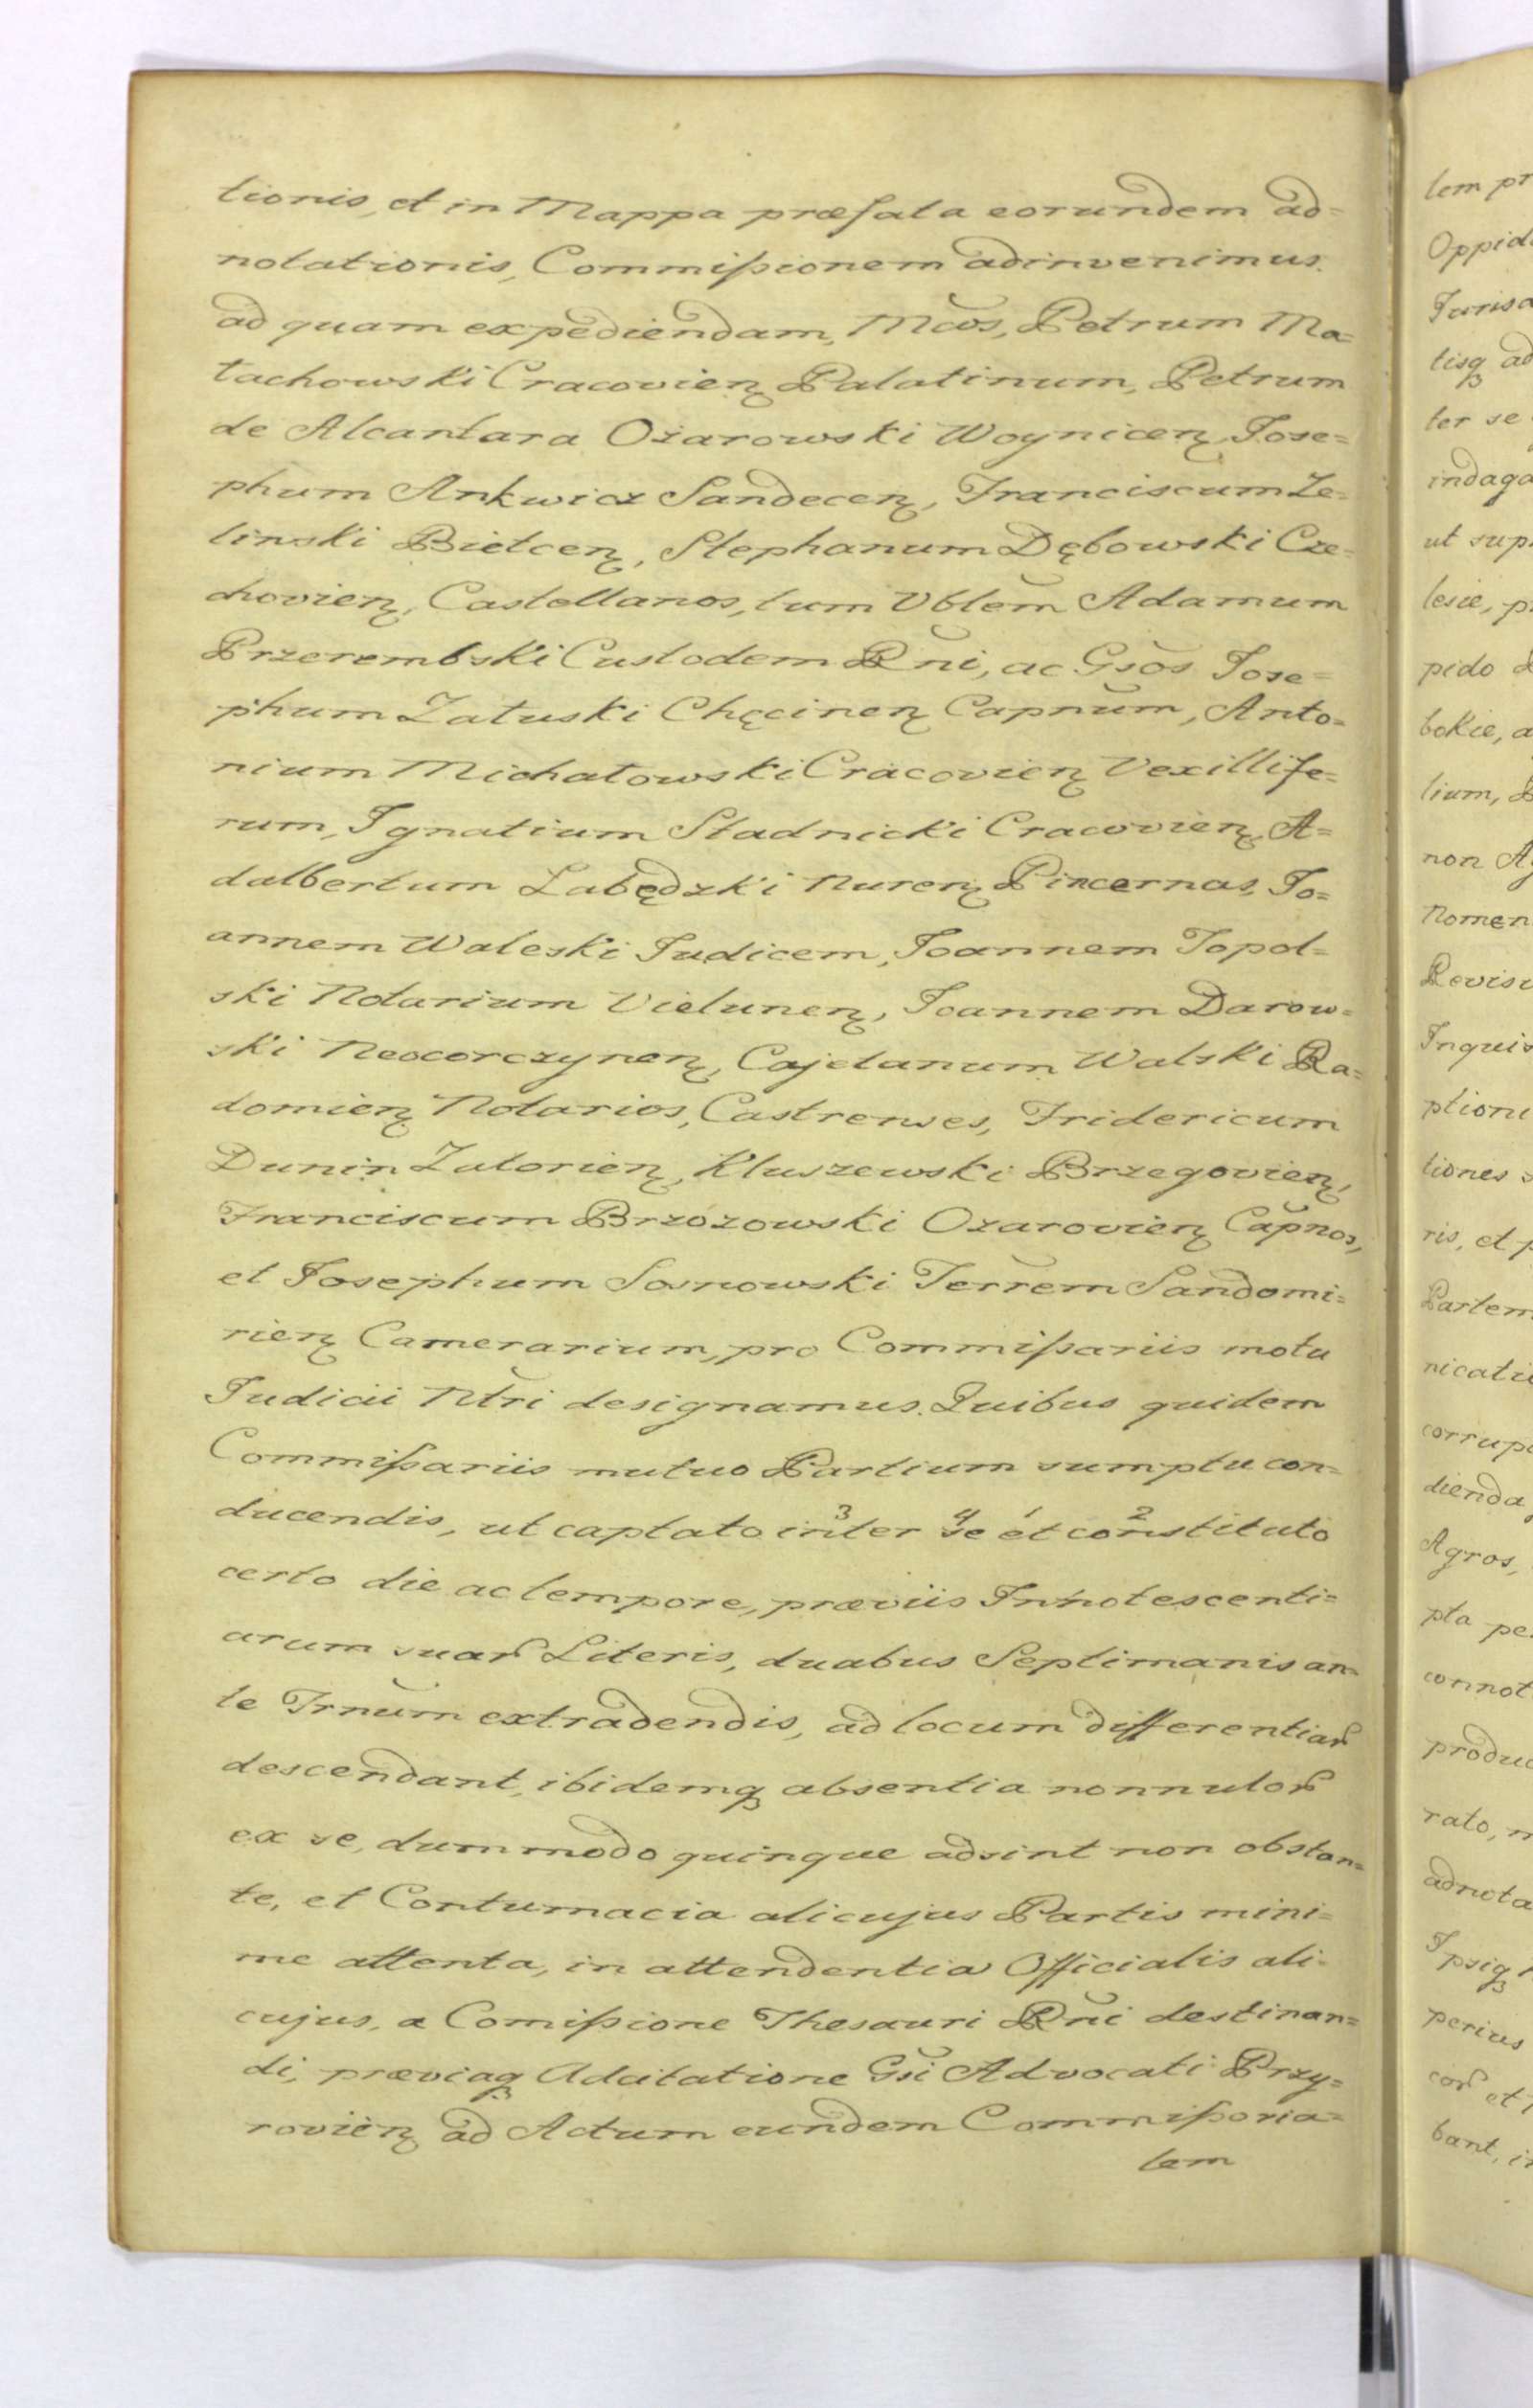 tionis, et in Mappa præfata eorundem ad=
notationis, Commißionem adinvenimus.
ad quam expediendam, Mcos, Petrum Ma=
łachowski Cracovien Palatinum, Petrum
de Alcantara Ożarowski Woynicen, Jose=
phum Ankwicz Sandecen, Franciscum Że=
linski Bietcen, Stephanum Dębowski Cze=
chovien, Castellanos, tum Vblem Adamum
Przerembski Custodem Rni, ac Gsos Jose=
phum Załuski Chęcinen Capnum, Anto=
nium Michałowski Cracovien Vexillife=
rum, Ignatium Stadnicki Cracovien, A=
dalbertum Łabędzki Nuren Pincernas, Jo=
annem Waleski Judicem, Joannem Topol=
ski Notarium Vielunen, Joannem Darow=
ski Neocorczynen, Cajetanum Walski Ra=
domien Notarios, Castrenses, Fridericum
Dunin Zatorien, Kluszewski Brzegovien,
Franciscum Brzozowski Ozarovien Capnos,
et Josephum Sosnowski Terrem Sandomi=
rien Camerarium, pro Commißariis motu
Judicii Ntri designamus. Quibus quidem
Commißariis mutuo Partium sumptu con=
ducendis, ut captato inter 3 se 4 et 1 constituto 2
certo die ac tempore, præviis Innotescenti=
arum suar Literis, duabus Septimanis an=
te Trnum extradendis, ad locum differentiar
descendant, ibidemq absentia nonnulor
ex se, dummodo quinque adsint non obstan=
te, et Contumacia alicujus Partis mini=
me attenta, in attendentia Officialis ali=
cujus, a Comißione Thesauri Rni destinan=
di, præviaq Adcitatione Gsi Advocati Przy=
rovien ad Actum eundem Commißoria=
lem
lem pr
Oppid
Jurisa
tisq ad
ter se
indaga
ut sup
lesie, p
pido d
bokie, a
lium,
non Ag
Nomen
Revisi
Inquis
ptione
tiones s
ris, et p
Partem
nicatu
corrup
dienda
Agros,
pta pe
connot
produc
rato, n
adnota
Ipsiq
perius
cor et
bant, i